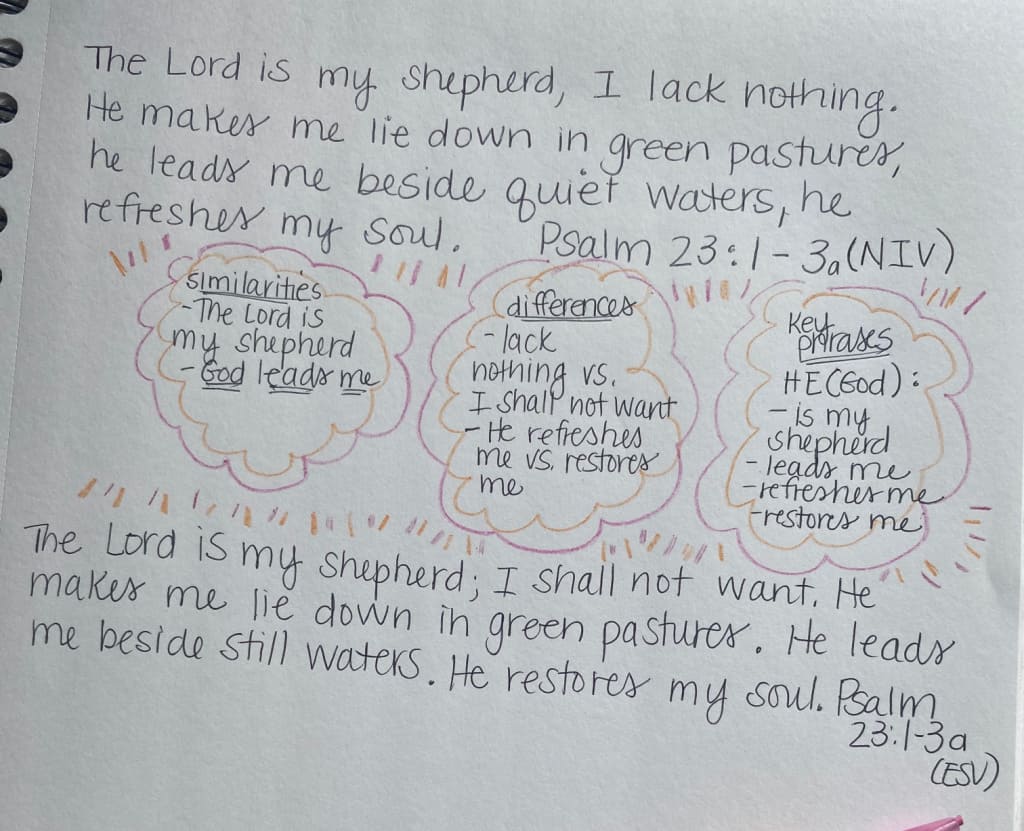 The Lord is my shepherd, I lack nothing.
He makes me lie down in green pastures,
he leads me beside quiet waters, he
refreshes my soul. Psalm 23:1-3a (NIV)
similarities
- The Lord is
my shepherd
- God leads me
differences
- lack
nothing vs.
I shall not want
- He refreshes
me vs. restores
me
Key
phrases
HE (God):
- is my
shepherd
- leads me
- refreshes me
- restores me
The Lord is my shepherd; I shall not want. He
makes me lie down in green pastures. He leads
me beside still waters. He restores my soul. Psalm
23:1-3a
(ESV)